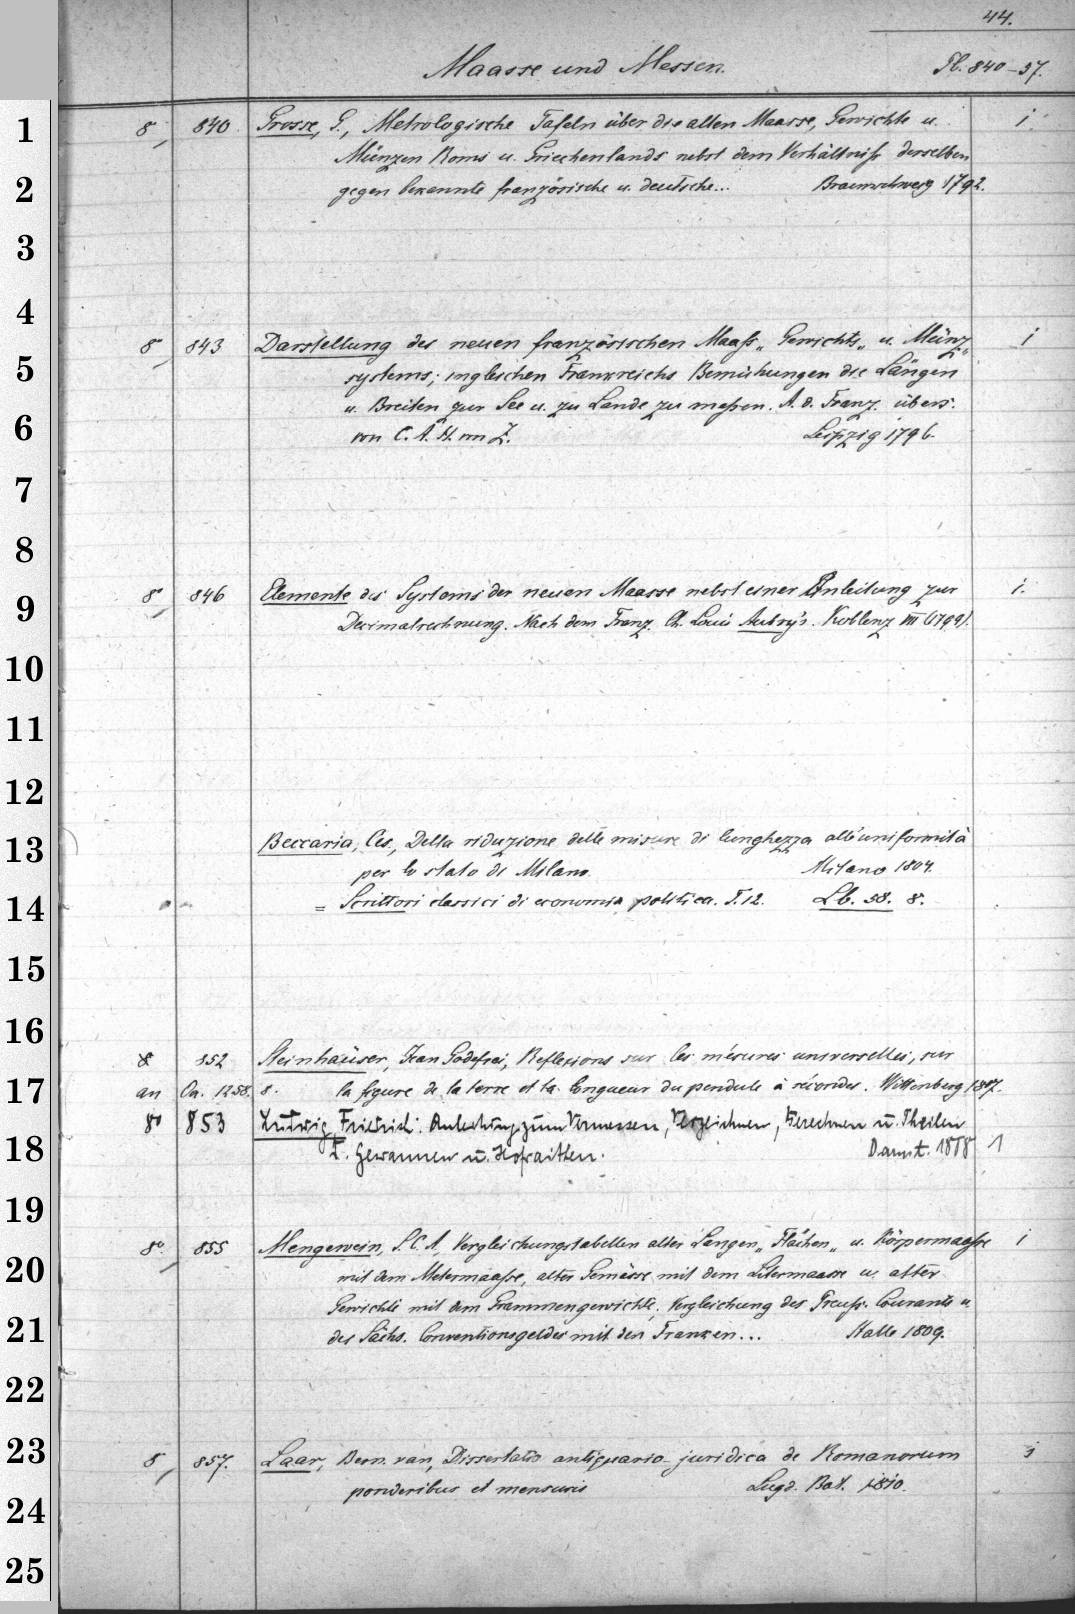 44.
Maasse und Messen.
Pb. 840-57.
1
8 840 Grosse, G., Metrologische Tafeln über die alten Maasse, Gewichte u. 1.
Münzen Roms u. Griechenlands nebst dem Verhältniss derselben
2
gegen bekannte französische u. deutsche... Braunschweig 1792.
3
4
8 843 Darstellung des neuen französischen Maass„ Gewichts„ u. Münz„ 1
5
systems; ingleichen Frankreichs Bemühungen die Längen
u. Breiten zur See u. zu Lande zu messen. A. d. Franz. übers.
6
von C. A. H. Leipzig 1796.
7
8
8 846 Elemente des Systems der neuen Maasse nebst einer Anleitung zur 1.
9
Decimalrechnung. Nach dem Franz. Ch. Louis Aubry's. Koblenz VII (1799).
10
11
12
13
Beccaria, Ces., Della riduzione delle misure di lunghezza all'uniformità
per lo stato di Milano. Milano 1804.
14
= Scrittori classici di economia politica. T. 12. Lb. 58. 8.
15
16
8 852 Steinhäuser, Jean Godefroi, Reflexions sur les mésures universelles, sur
17
an Oa. 1258. 8. la figure de la terre et la longueur du pendule à sécondes. Wittenberg 1807.
8° 853 Ludwig, Friedrich. Anleitung zum Vermessen, Verzeichnen, Berechnen u. Theilen
18
v. Gewannen u. Hofraithen. Darmt. 1818 1
19
8° 855 Mengewein, S. C. A., Vergleichungstabellen alter Längen„ Flächen„ u. Körpermaasse 1
20
mit dem Metermaasse, alter Gemässe mit dem Litermaasse u. alter
Gewichte mit dem Grammengewichte, Vergleichung des Preuss. Courants u.
21
des Sächs. Conventionsgeldes mit den Franken... Halle 1809.
22
23
8 857. Laar, Bern. van, Dissertatio antiquario-juridica de Romanorum 1
ponderibus et mensuris Lugd. Bat. 1810.
24
25